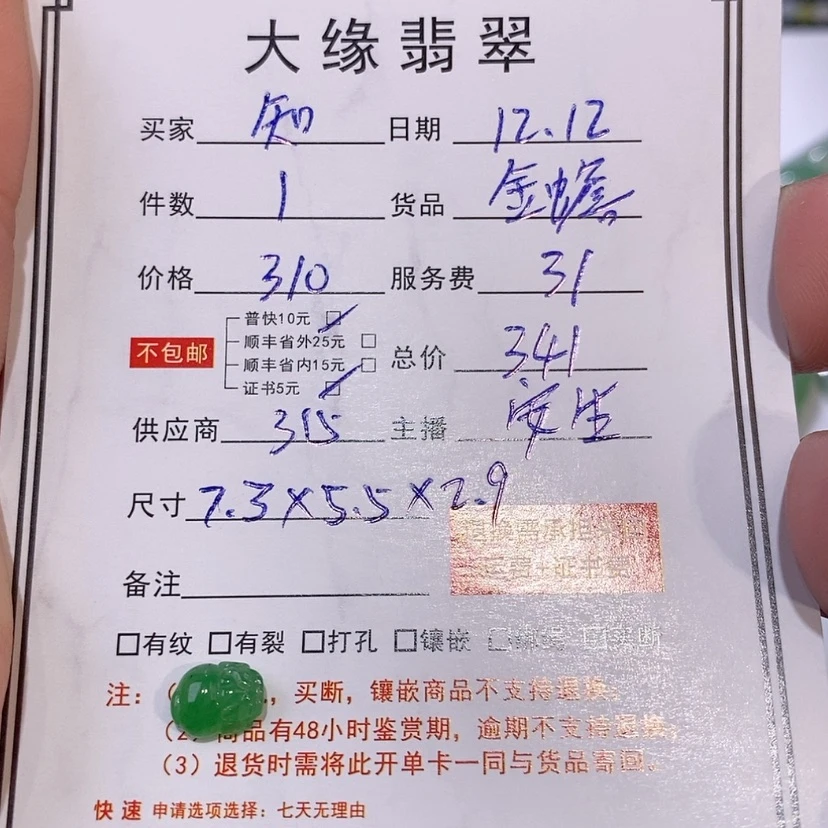 大缘翡翠
买家 知 日期 12.12
件数 1 货品 金蟾
价格 310 服务费 31
普快10元
顺丰省外25元
不包邮
顺丰省内15元 总价 341
证书5元
供应商 315 主播 安生
尺寸 7.3×5.5×2.9
退换需承担
运费+证书费
备注
有纹 有裂 打孔 镶嵌 买断
注: 买断,镶嵌商品不支持退换。
(2)商品有48小时鉴赏期,逾期不支持退换;
(3)退货时需将此开单卡一同与货品寄回。
快速 申请选项选择:七天无理由